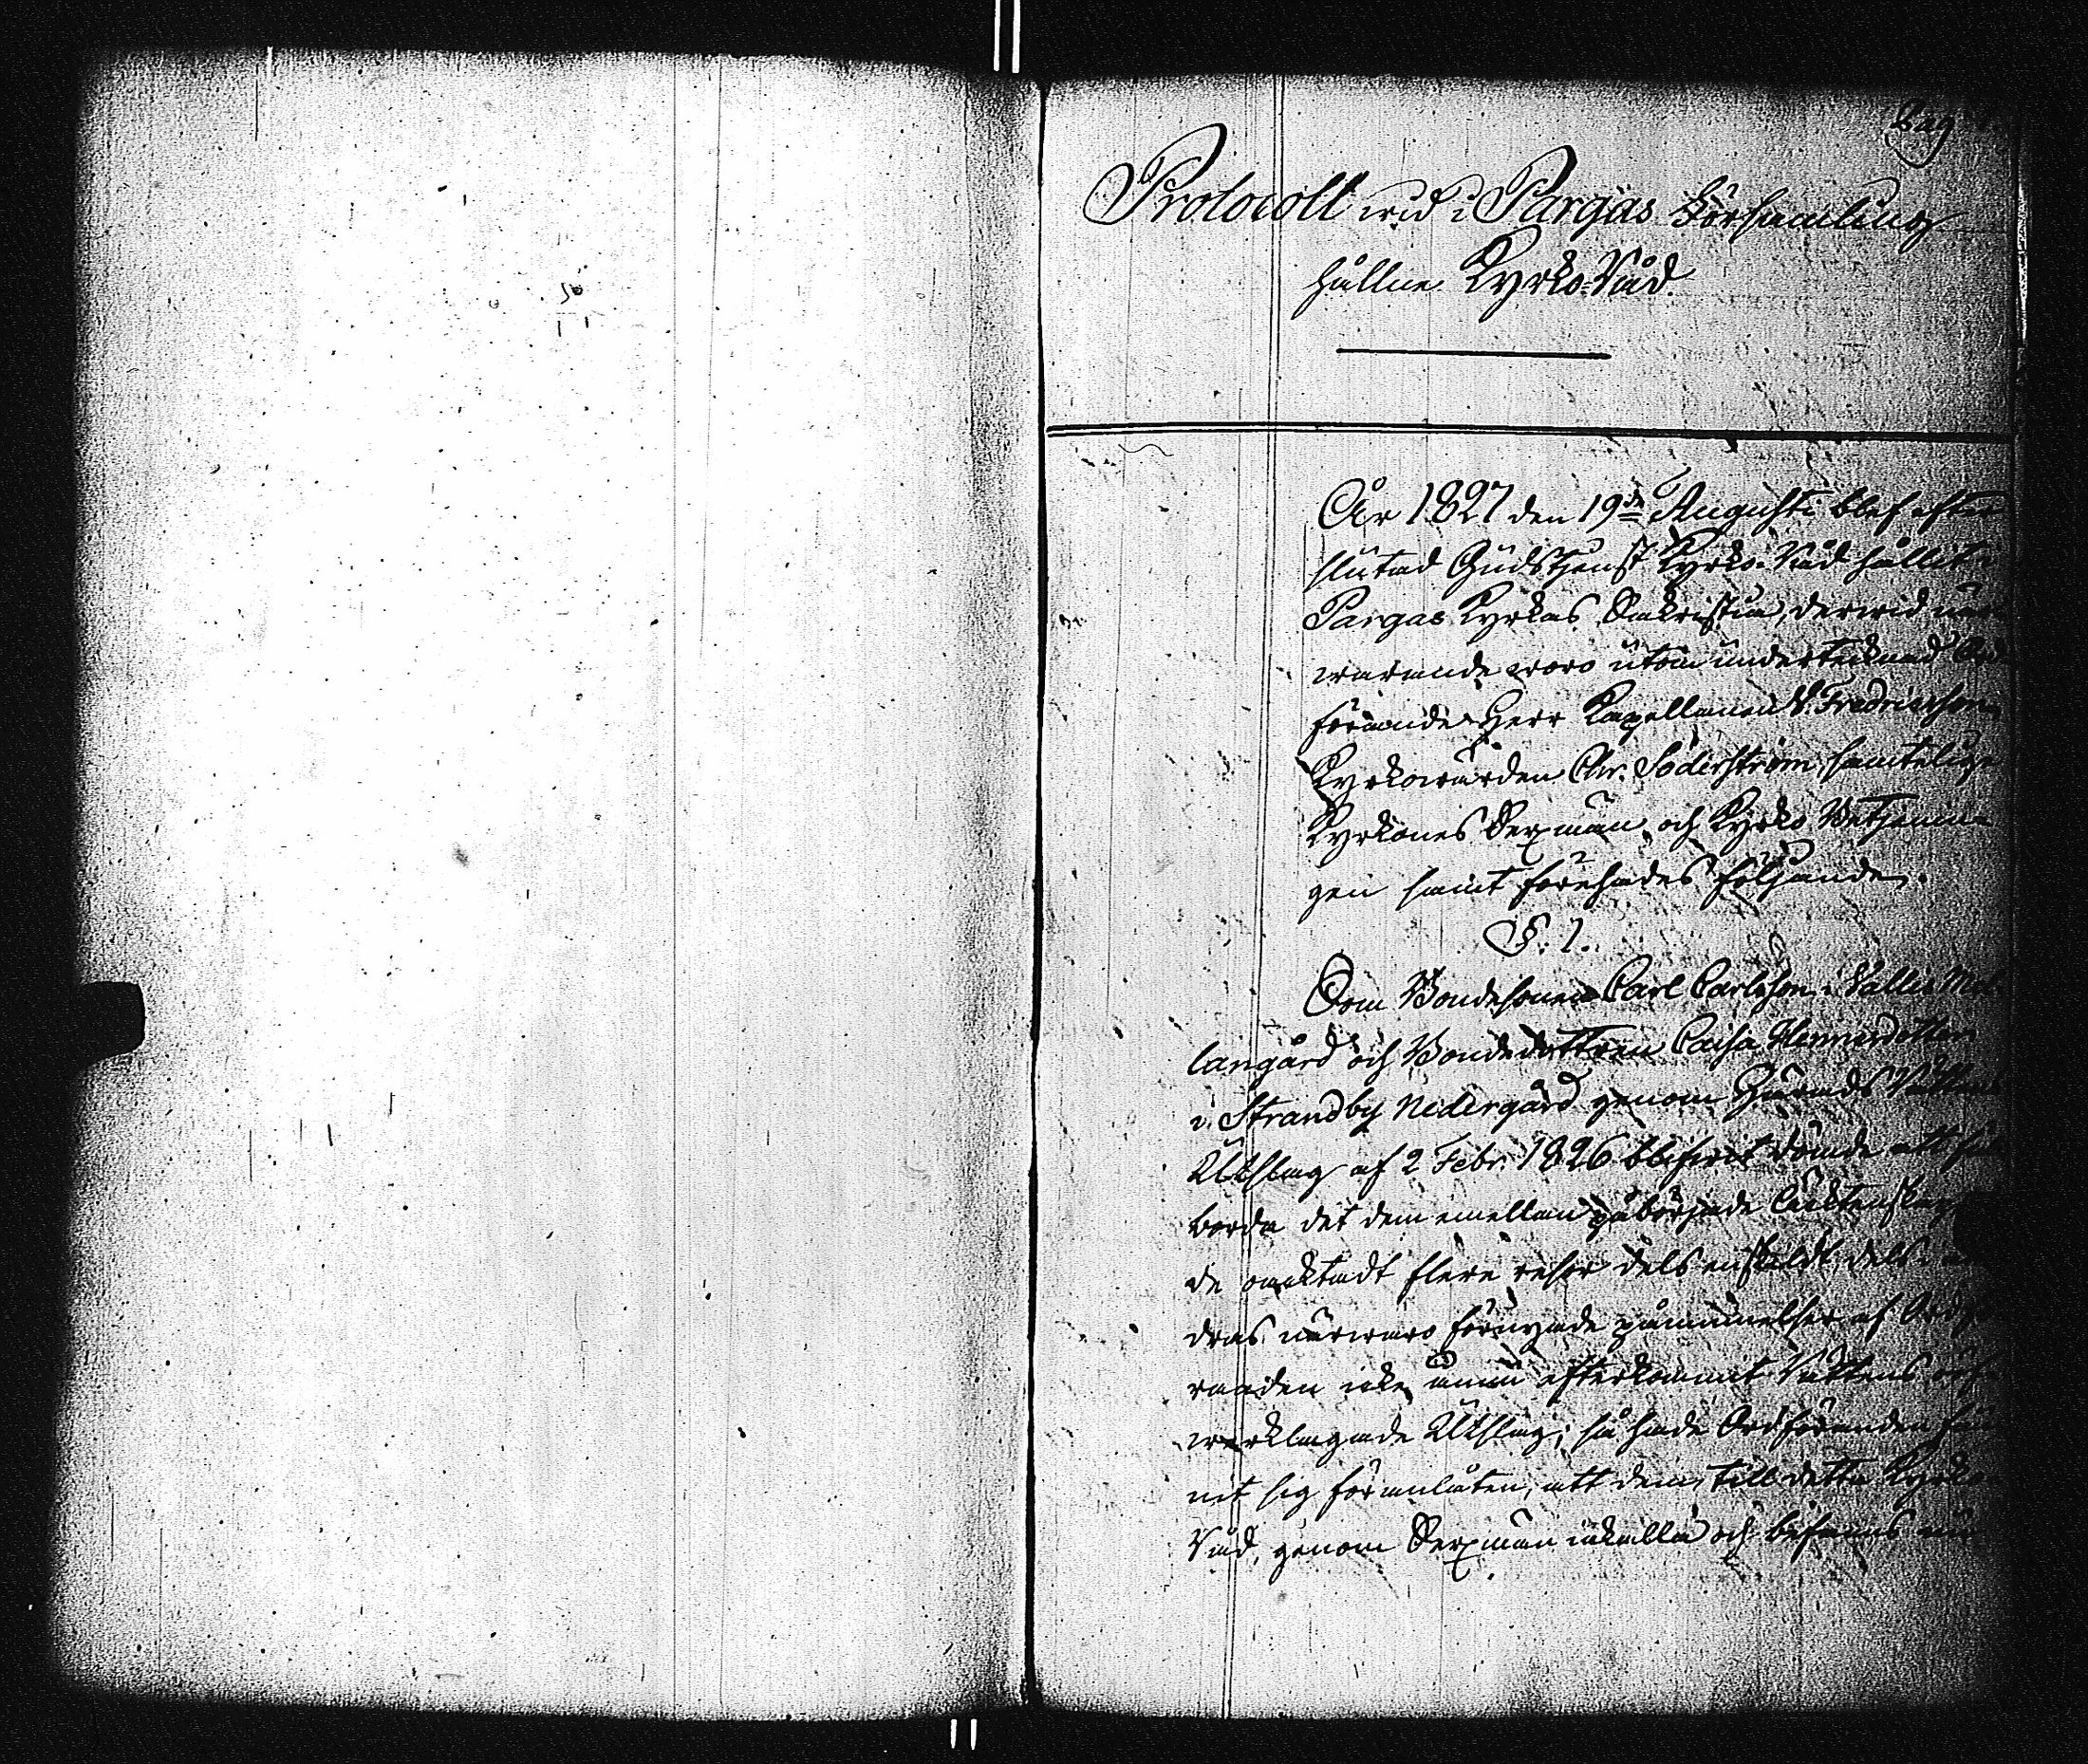 Pag 1.
Protocoll wid i Pargas Församling
hållne Kyrko-Råd.
År 1827 den 19de Augusti blef efter
slutad Gudstjenst Kyrko-Råd hållit i
Pargas Kyrkas Sakristia, derwid när-
warande woro utom undertecknad Ord-
förande Herr Kapellanen Fredricsson
Kyrkowärden Chr. Söderström, samtelige
Kyrkones Sexmän, och Kyrko Betjenin-
gen samt förehades följande.
§. 1.
Som Bondesonen Carl Carlsson i Vallis Mel-
langård och Bondedottren Caisa Henricsdotter
i Strandby Nedergård genom Härads Rättens
Utslag af 2 Febr. 1826 blifwit dömde att full-
borda det dem emellan påbörjade Ecktenskap
de oacktadt flere resor dels enskildt, dels i an-
dras närwaro förnyade påminnelser af Ordfö-
randen icke ännu efterkommit Rättens
Utslag; så hade Ordföranden fun-
nit sig föranlåten, att dem till detta Kyrko-
Råd, genom Sexmän inkalla och befanns nu